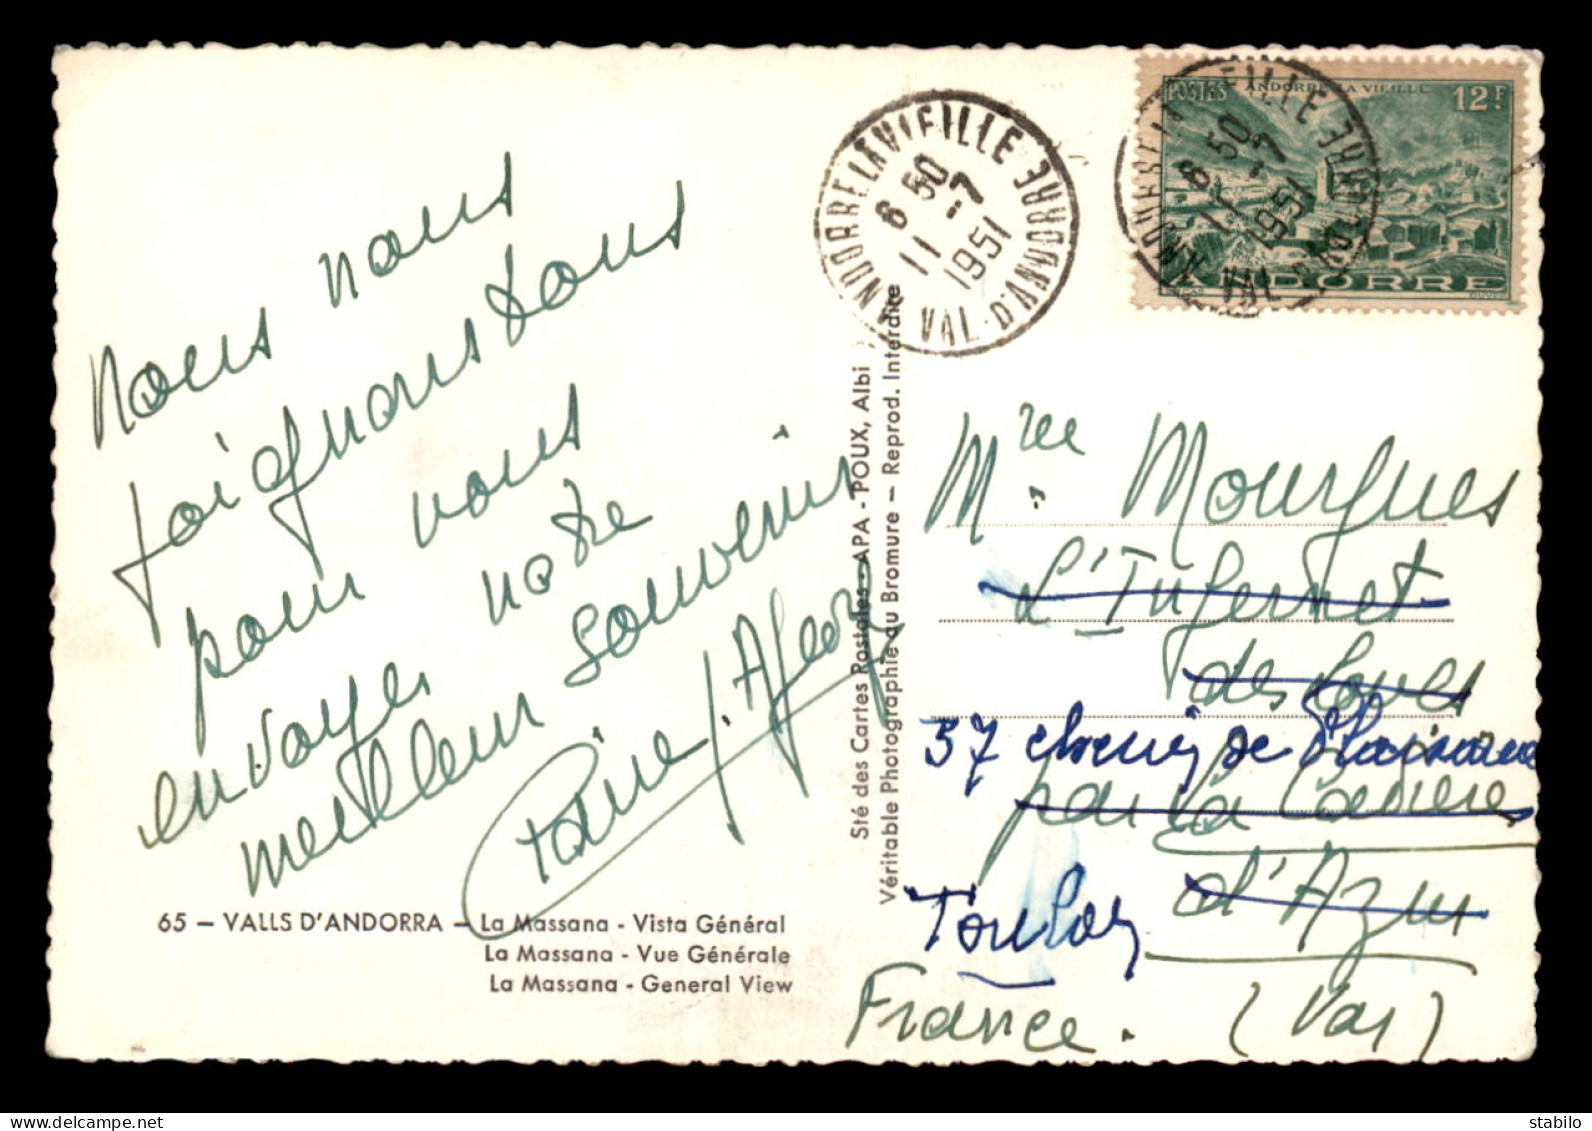 Nous nous
joignons tous
pour vous
envoyer notre
meilleur souvenir
65 — VALLS D'ANDORRA — La Massana - Vista Général
La Massana - Vue Générale
La Massana - General View
Sté des Cartes Postales - APA - POUX, Albi
Véritable Photographie au Bromure — Reprod. Interdite
ANDORRE LA VIEILLE
6 50
11 -7
1951
VAL-D'ANDORRE
POSTES
ANDORRE LA VIEILLE
12F
ANDORRE
ANDORRE LA VIEILLE
6 50
11 -7
1951
VAL-D'ANDORRE
Mourgues
L'Infernet
des
37 chemin de Plaisance
par La
d'Azur
Toulon
France. (Var)
stabilo